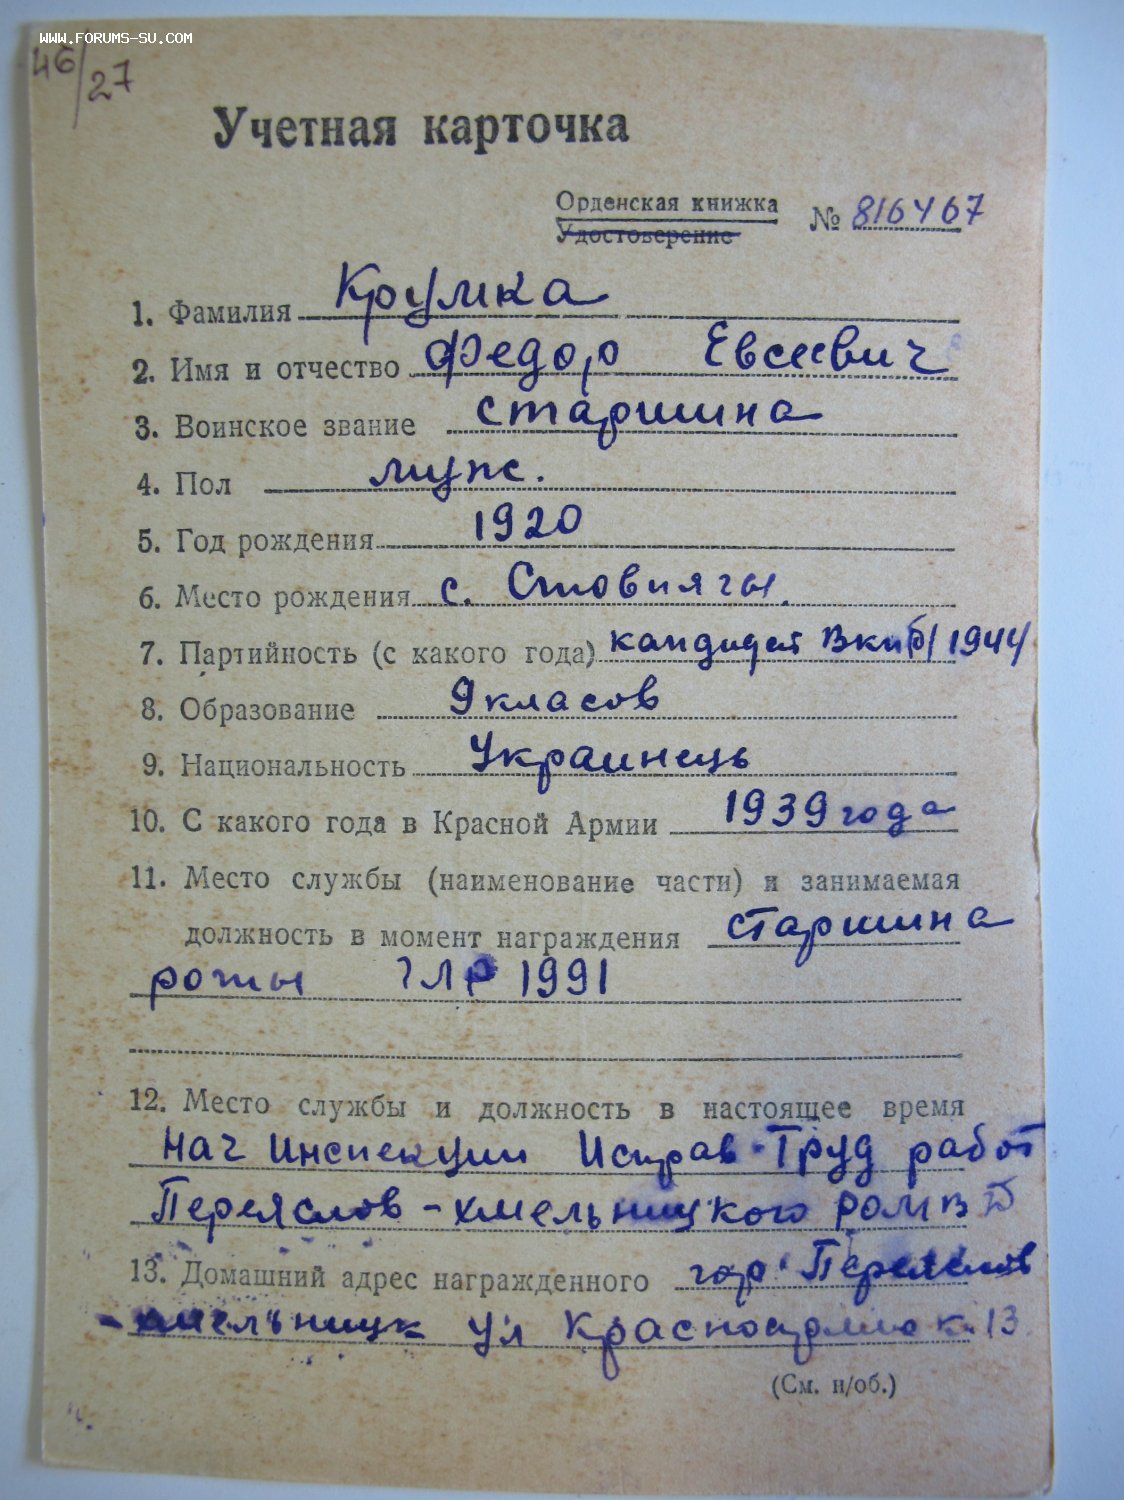 WWW.FORUMS-SU.COM
46/27
Учетная карточка
Орденская книжка № 816467
Удостоверение
1. Фамилия Крумка
2. Имя и отчество Федор Евсеевич
3. Воинское звание старшина
4. Пол муж.
5. Год рождения 1920
6. Место рождения с. Стовпягы.
7. Партийность (с какого года) кандидат ВКП(б) 1944
8. Образование 9 класов
9. Национальность Украинець
10. С какого года в Красной Армии 1939 года
11. Место службы (наименование части) и занимаемая
должность в момент награждения старшина
роты ГЛР 1991
12. Место службы и должность в настоящее время
Нач Инспекции Исправ-Труд работ
Переяслов-хмельницкого РОМВД
13. Домашний адрес награжденного гор. Переяслов
-хмельницк ул 13
(См. н/об.)